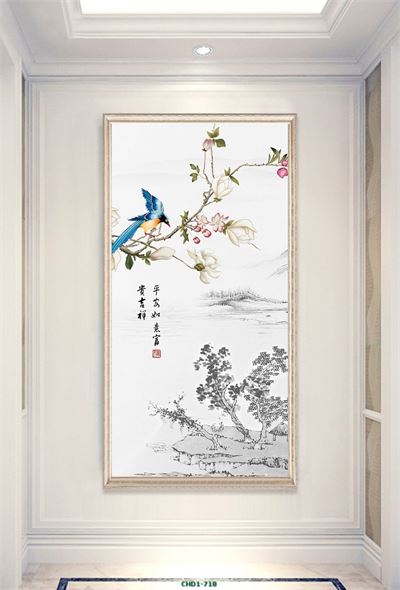 平安如意富
貴吉祥
CHD1-710